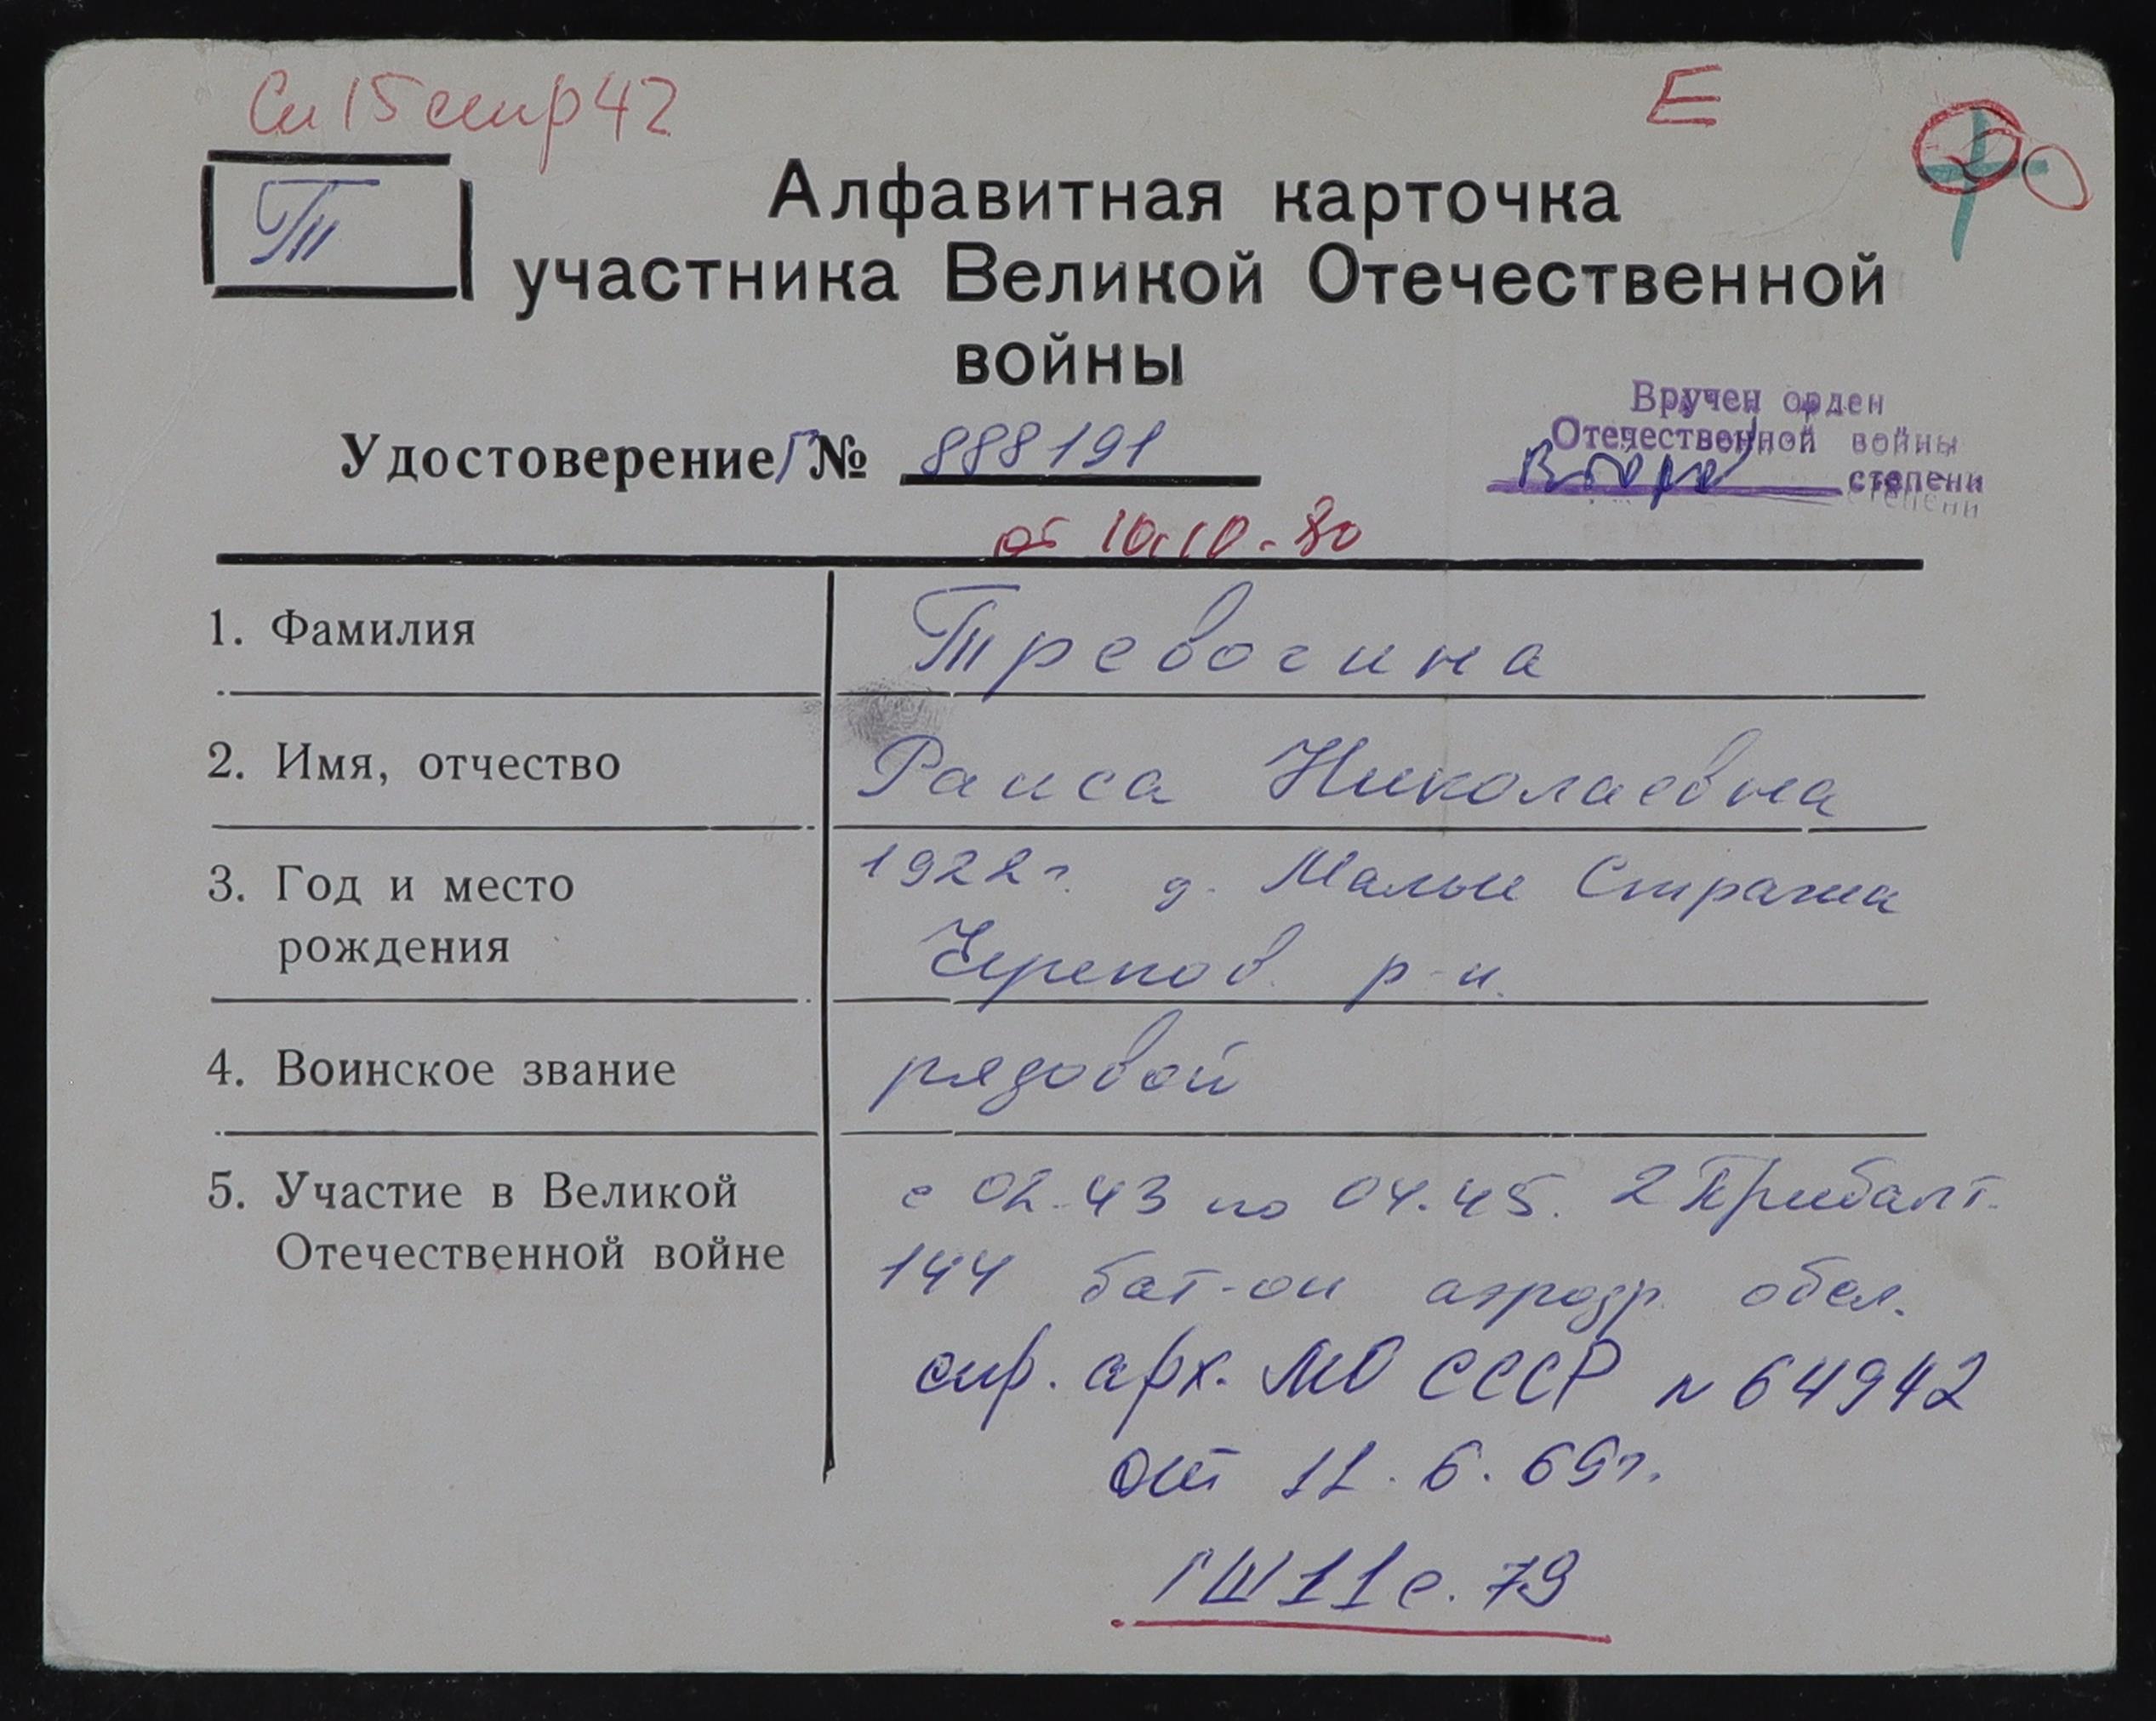 Сп 15 стр 42
Е
Т
Алфавитная карточка
участника Великой Отечественной
войны
Вручен орден
Отечественной войны
второй степени
Удостоверение Г № 888191
от 10.10.80
1. Фамилия
Тревогина
2. Имя, отчество
Раиса Николаевна
3. Год и место
рождения
1922 г. д. Малые Стражи
р-н.
4. Воинское звание
рядовой
5. Участие в Великой
Отечественной войне
с 02.43 по 04.45. 2 Прибалт.
144 бат-он аэродр. обсл.
спр. арх. МО СССР N 64942
от 11.6.69г.
ГШ 11 с. 79